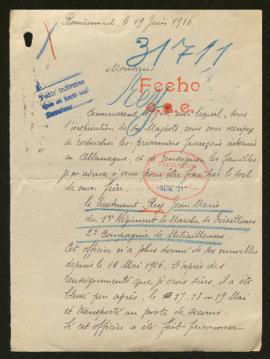 Remiremont, le 19 Juin 1916.
31711
Monsieur
Pedir informes
Fecho
Rey
c.s.e.
Connaissant le zèle avec lequel, sous
l'inspiration de Sa Majesté vous vous occupez
de rechercher les prisonniers français internés
en Allemagne, et de renseigner les familles,
je m'adresse à vous pour être fixé sur le sort
de mon frère.
le Lieutenant Rey Jean Marie
du 1er Régiment de Marche de Tirailleurs
2e Compagnie de Mitrailleuses
Cet officier n'a plus donné de ses nouvelles
depuis le 16 Mai 1916. D'après des
renseignements que je crois sûrs, il a été
blessé peu après, le 17, 18 ou 19 Mai
et transporté au poste de secours.
Si cet officier a été fait prisonnier